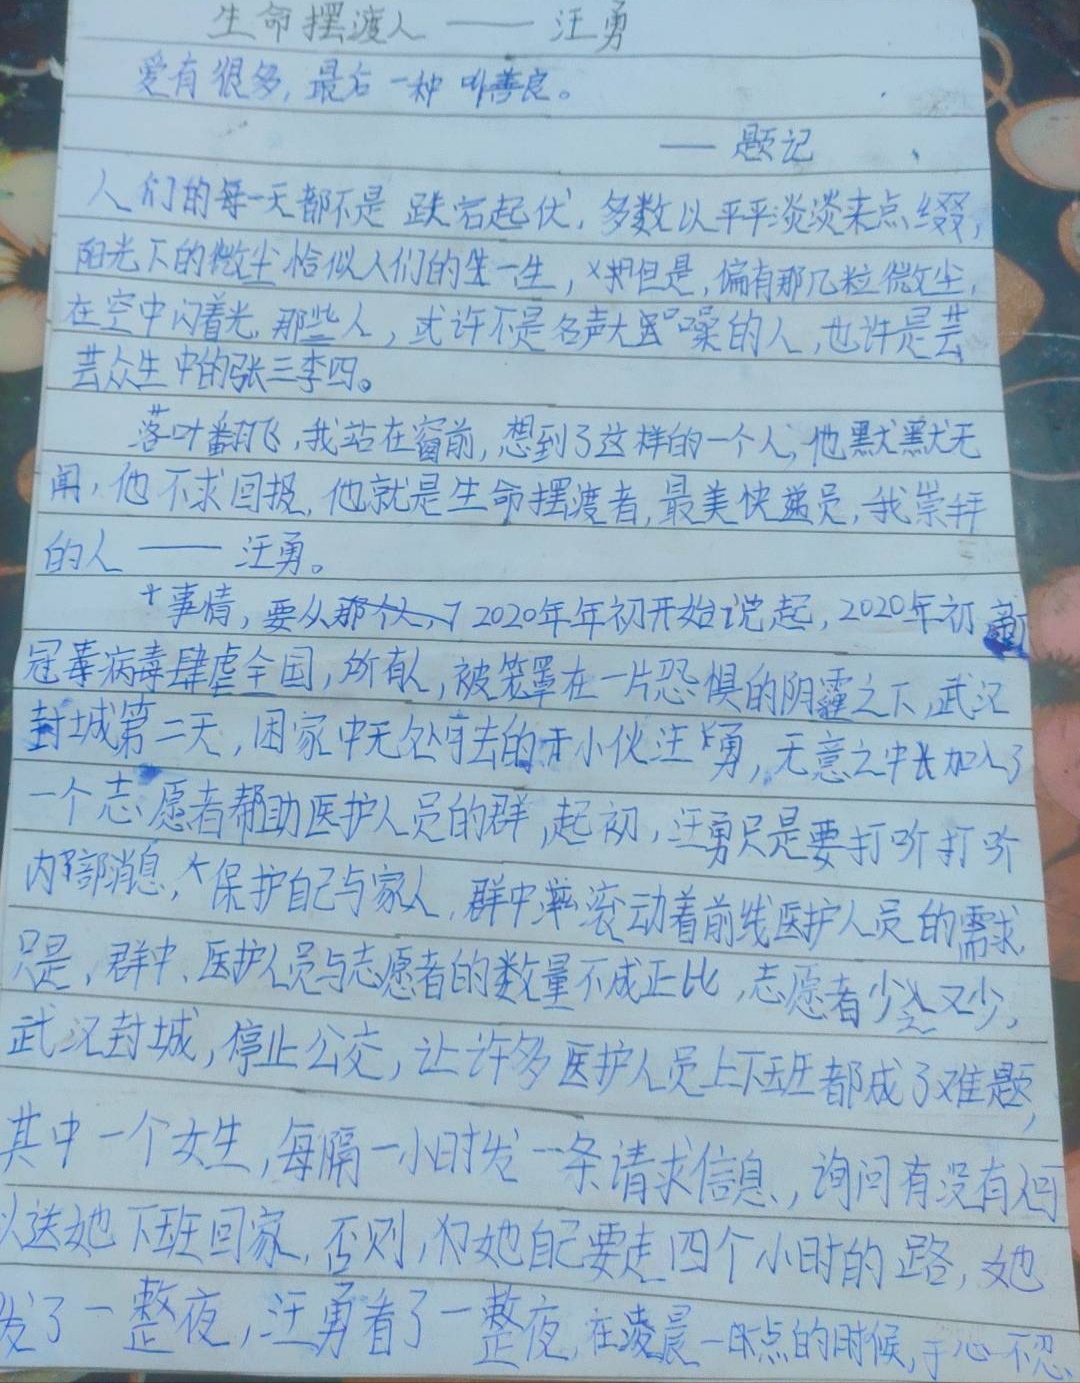 生命摆渡人 —— 汪勇
爱有很多,最后一种叫善良。
—— 题记
人们的每一天都不是跌宕起伏,多数以平平淡淡来点缀,
阳光下的微尘恰似人们的一生,但是,偏有那几粒微尘,
在空中闪着光,那些人,或许不是名声大噪的人,也许是芸
芸众生中的张三李四。
落叶翻飞,我站在窗前,想到了这样的一个人,他默默无
闻,他不求回报,他就是生命摆渡者,最美快递员,我崇拜
的人 —— 汪勇。
事情,要从2020年年初开始说起,2020年初新
冠毒病毒肆虐全国,所有人,被笼罩在一片恐惧的阴霾之下,武汉
封城第二天,困家中无处可去的小伙汪勇,无意之中加入了
一个志愿者帮助医护人员的群,起初,汪勇只是要打听打听
内部消息,保护自己与家人,群中滚动着前线医护人员的需求
只是,群中、医护人员与志愿者的数量不成正比,志愿者少之又少,
武汉封城,停止公交,让许多医护人员上下班都成了难题,
其中一个女生,每隔一小时发一条请求信息,询问有没有人可
以送她下班回家,否则,她自己要走四个小时的路,她
发了一整夜,汪勇看了一整夜,在凌晨一点的时候,于心不忍